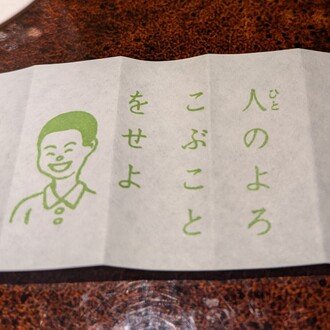 人のよろ
ひと
こぶこと
をせよ